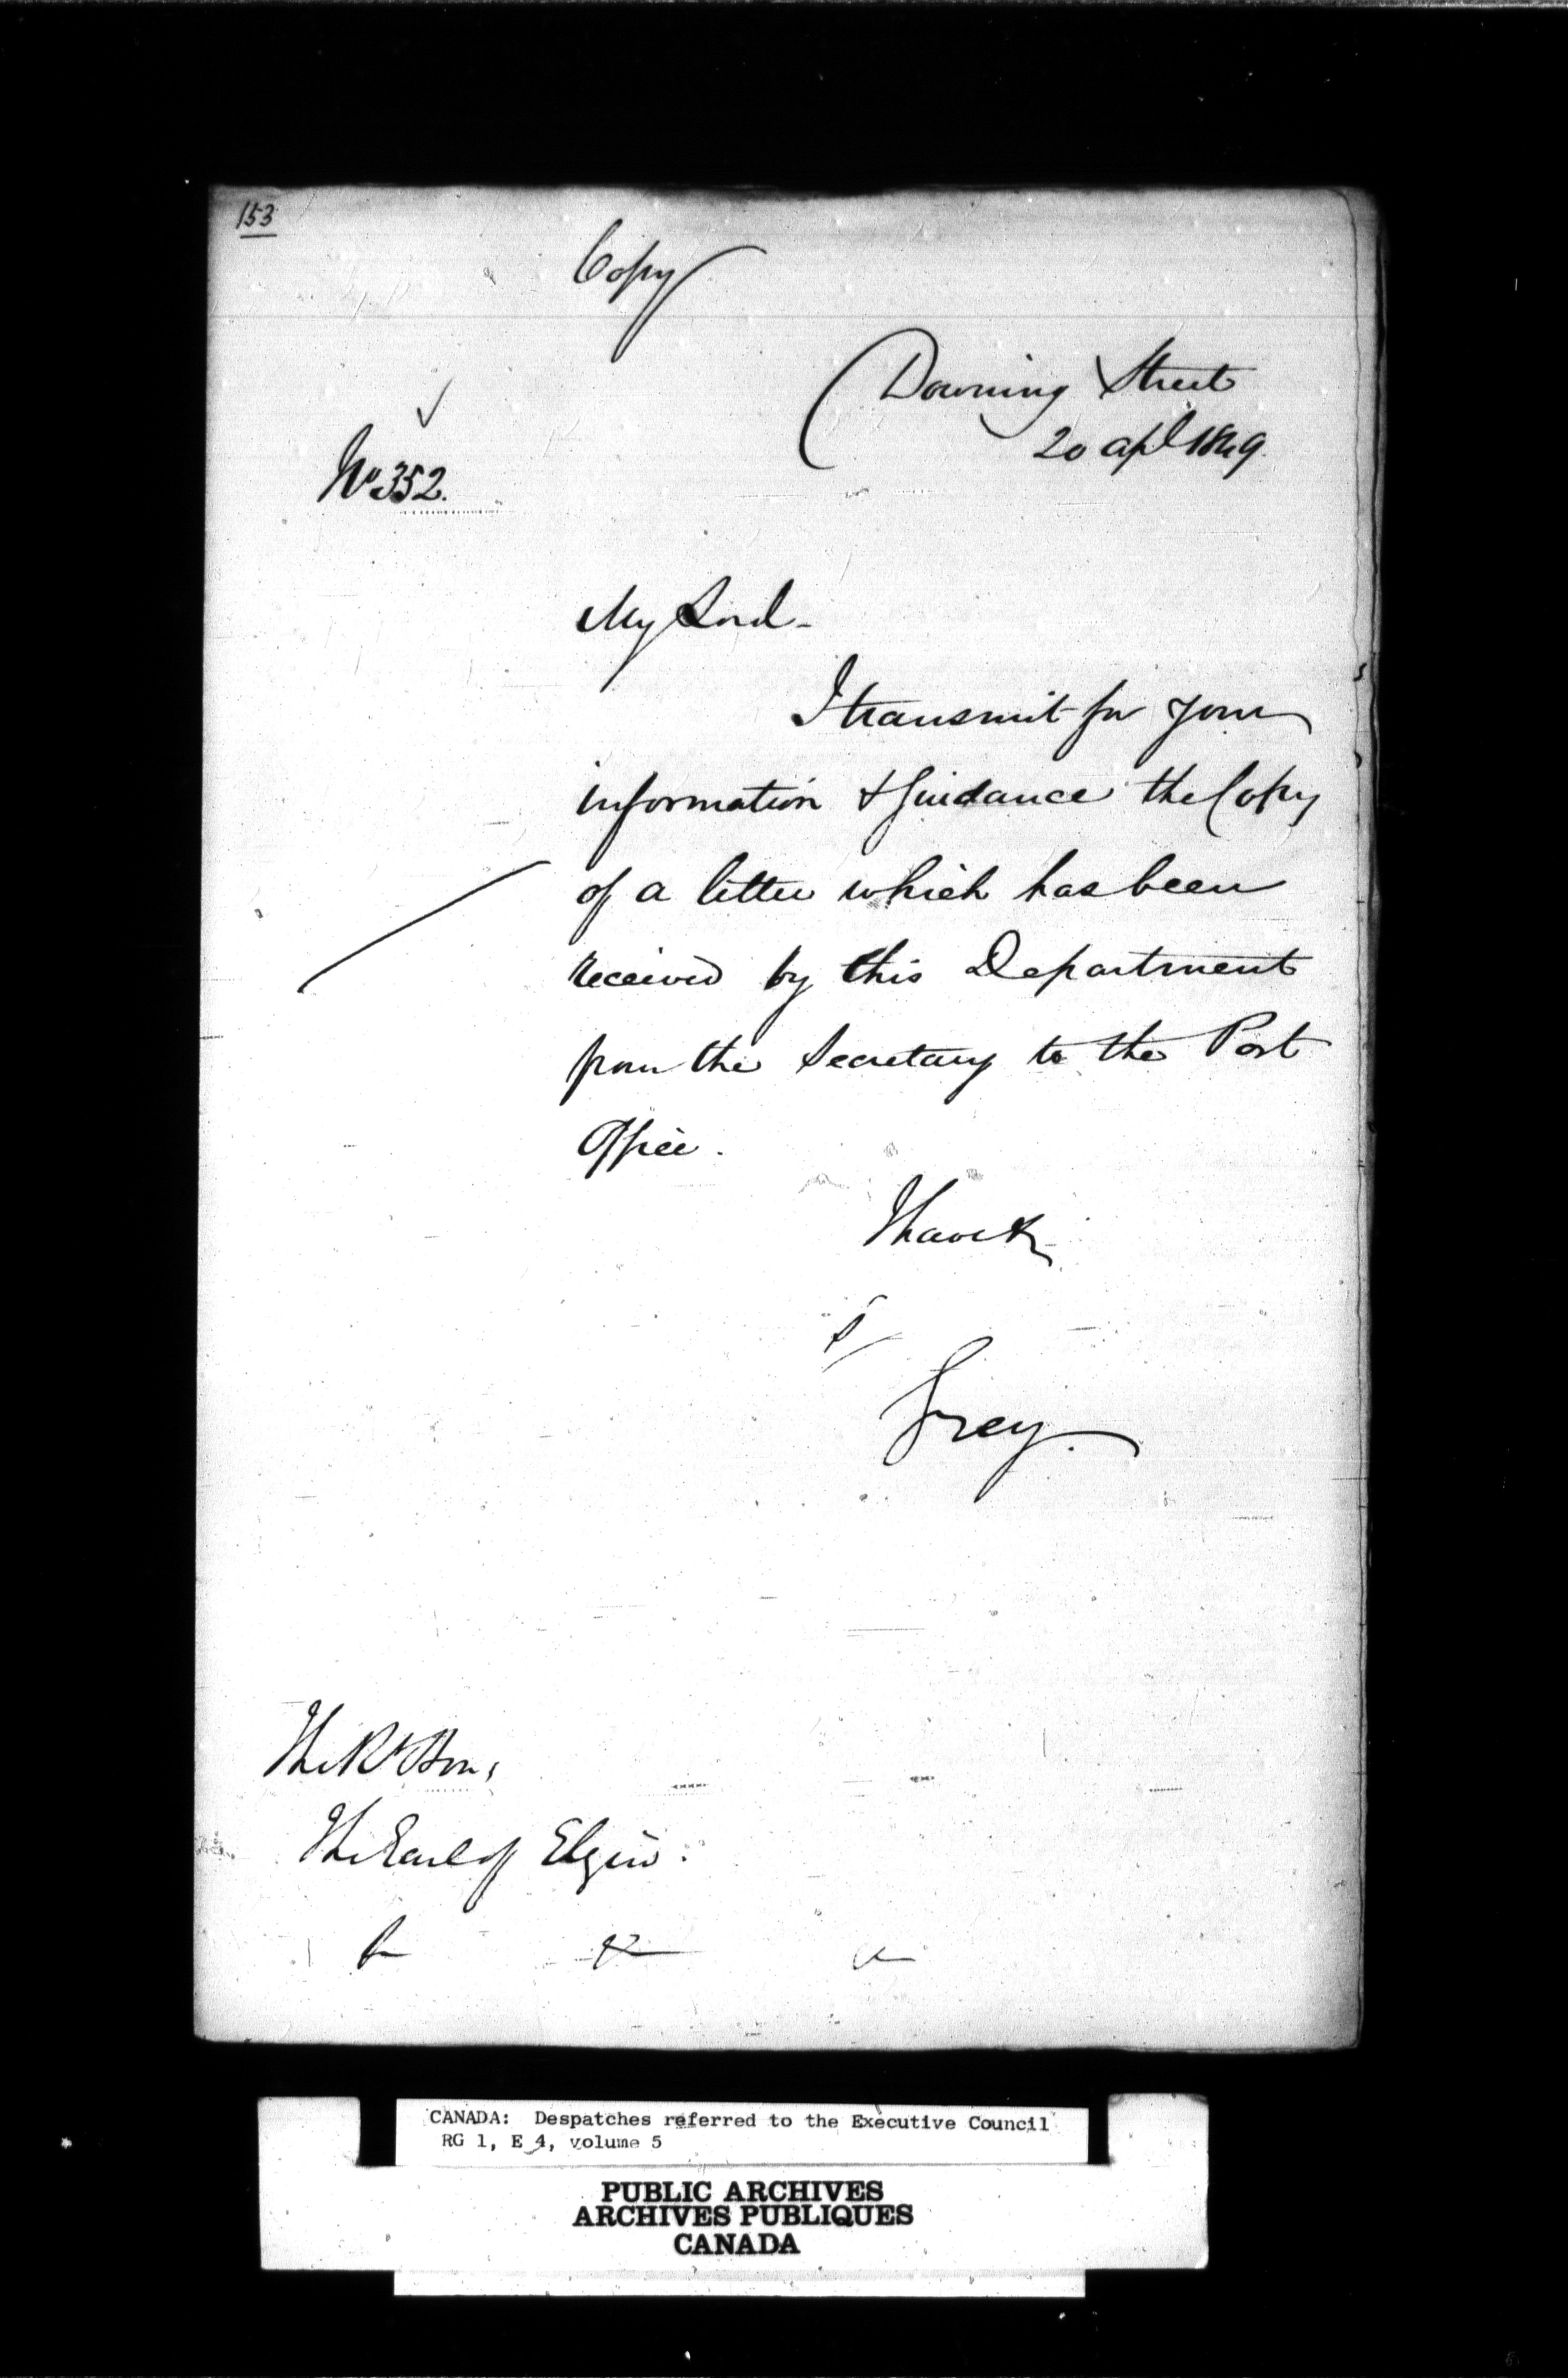 153
Copy
Downing Street
20 apl 1849.
No 352.
My Lord -
I transmit for your
information & Guidance the Copy
of a letter which has been
received by this Department
from the Secretary to the Post
Office.
I have &c
s/
Grey.
The Rt Hon:
The Earl of Elgin.
&c &c &c
CANADA: Despatches referred to the Executive Council
RG 1, E 4, volume 5
PUBLIC ARCHIVES
ARCHIVES PUBLIQUES
CANADA